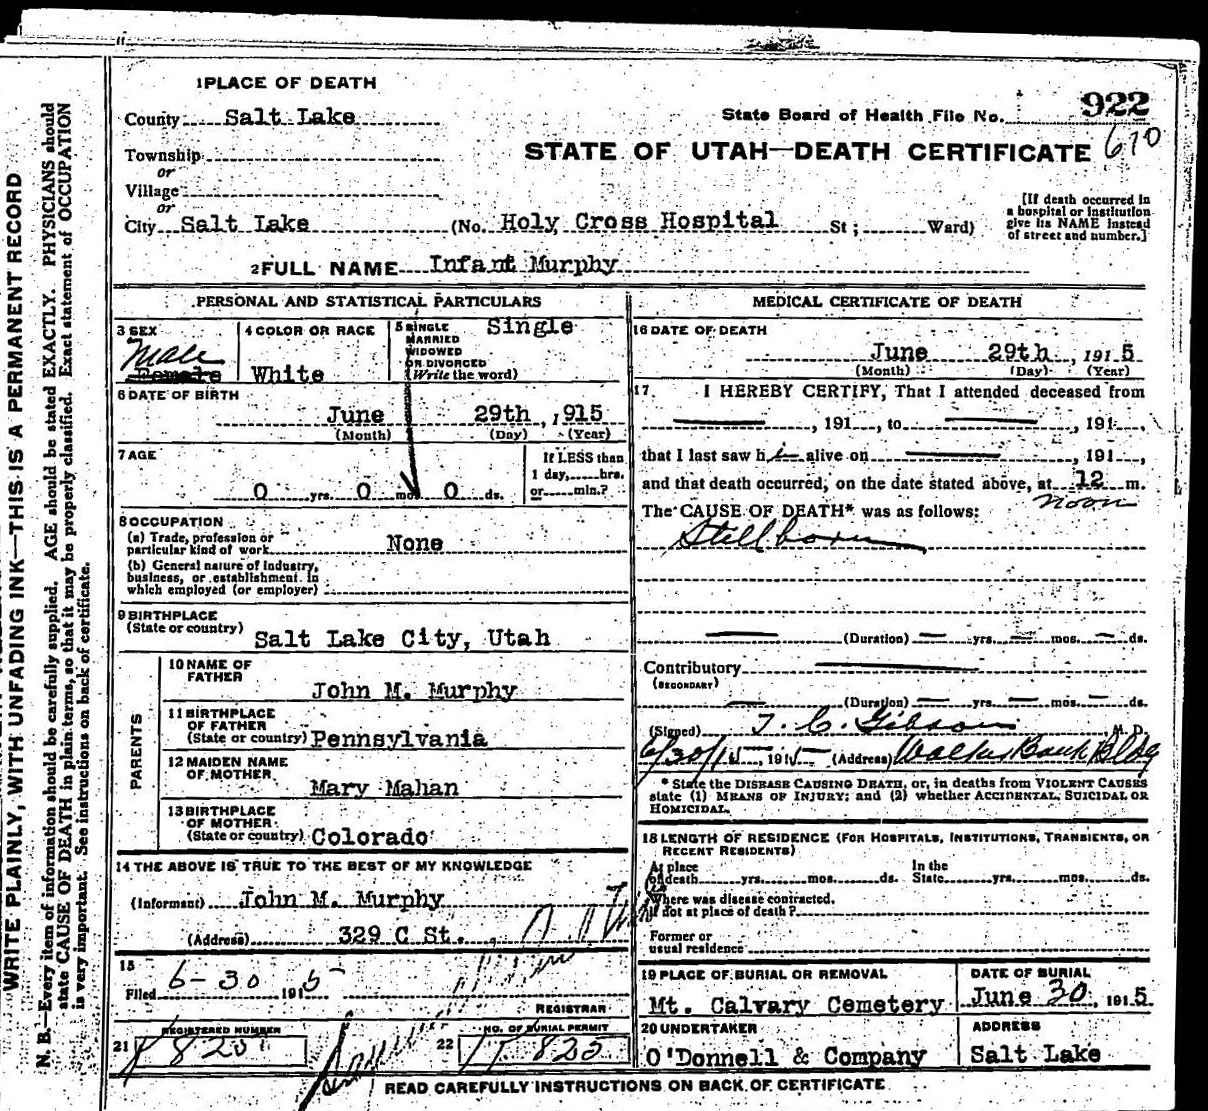 1 PLACE OF DEATH
County Salt Lake
State Board of Health File No. 922
Township
or
Village
or
STATE OF UTAH—DEATH CERTIFICATE 670
City Salt Lake (No. Holy Cross Hospital St; Ward)
[If death occurred in
a hospital or institution
give its NAME instead
of street and number.]
2 FULL NAME Infant Murphy
PERSONAL AND STATISTICAL PARTICULARS
3 SEX
Male
Female
4 COLOR OR RACE
White
5 SINGLE
MARRIED
WIDOWED
OR DIVORCED
(Write the word)
Single
6 DATE OF BIRTH
June 29th, 1915
(Month) (Day) (Year)
7 AGE
0 yrs. 0 mos. 0 ds.
If LESS than
1 day, hrs.
or min.?
8 OCCUPATION
(a) Trade, profession or
particular kind of work None
(b) General nature of industry,
business, or establishment in
which employed (or employer)
9 BIRTHPLACE
(State or country) Salt Lake City, Utah
PARENTS
10 NAME OF
FATHER
John M. Murphy
11 BIRTHPLACE
OF FATHER
(State or country) Pennsylvania
12 MAIDEN NAME
OF MOTHER
Mary Mahan
13 BIRTHPLACE
OF MOTHER
(State or country) Colorado
14 THE ABOVE IS TRUE TO THE BEST OF MY KNOWLEDGE
(Informant) John M. Murphy
(Address) 329 C St.
15
Filed 6-30 1915
REGISTRAR
REGISTERED NUMBER
21
22
NO. OF BURIAL PERMIT
825
MEDICAL CERTIFICATE OF DEATH
16 DATE OF DEATH
June 29th, 1915
(Month) (Day) (Year)
17 I HEREBY CERTIFY, That I attended deceased from
, 191 , to , 191 ,
that I last saw h alive on , 191 ,
and that death occurred, on the date stated above, at 12 m.
noon
The CAUSE OF DEATH* was as follows:
Stillborn
(Duration) yrs. mos. ds.
Contributory
(SECONDARY)
(Duration) yrs. mos. ds.
(Signed) T. C. Gibson M. D.
6/30/15, 191 (Address) Walker Bank Bldg
* State the DISEASE CAUSING DEATH, or, in deaths from VIOLENT CAUSES
state (1) MEANS OF INJURY; and (2) whether ACCIDENTAL, SUICIDAL OR
HOMICIDAL.
18 LENGTH OF RESIDENCE (FOR HOSPITALS, INSTITUTIONS, TRANSIENTS, OR
RECENT RESIDENTS)
At place
of death yrs. mos. ds.
In the
State yrs. mos. ds.
Where was disease contracted,
if not at place of death?
Former or
usual residence
19 PLACE OF BURIAL OR REMOVAL
Mt. Calvary Cemetery
DATE OF BURIAL
June 30, 1915
20 UNDERTAKER
O'Donnell & Company
ADDRESS
Salt Lake
READ CAREFULLY INSTRUCTIONS ON BACK OF CERTIFICATE
WRITE PLAINLY, WITH UNFADING INK—THIS IS A PERMANENT RECORD
N. B.—Every item of information should be carefully supplied. AGE should be stated EXACTLY. PHYSICIANS should
state CAUSE OF DEATH in plain terms, so that it may be properly classified. Exact statement of OCCUPATION
is very important. See instructions on back of certificate.